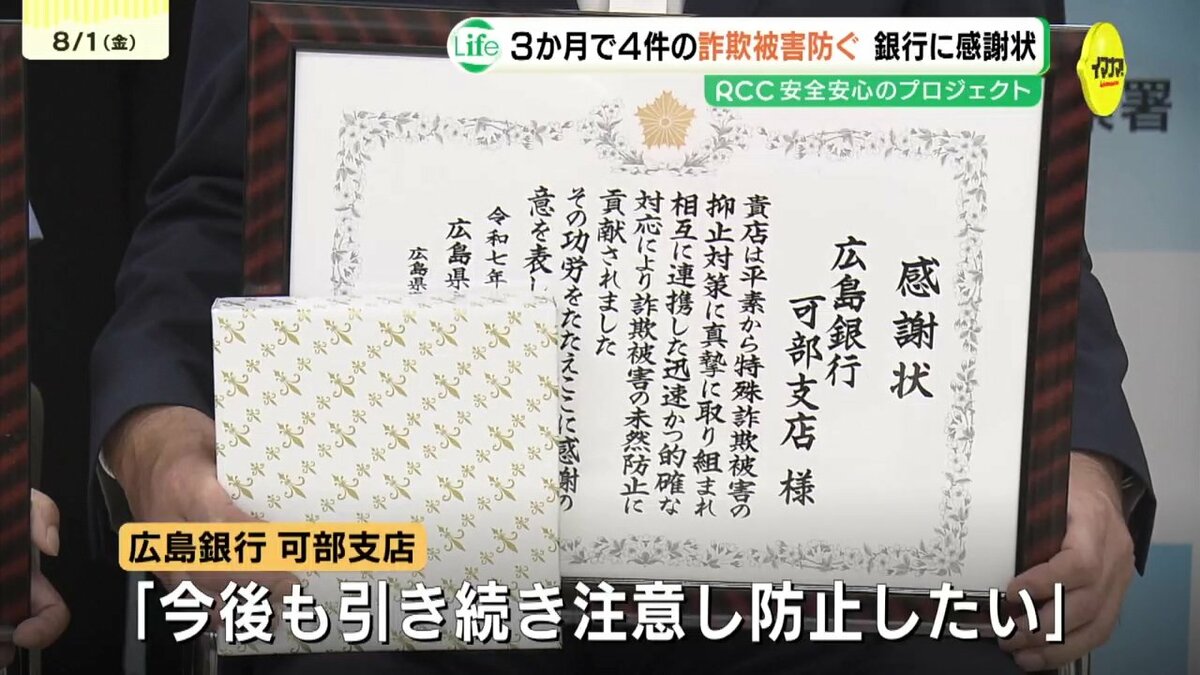 8/1(金)
Life
3か月で4件の詐欺被害防ぐ 銀行に感謝状
RCC 安全安心のプロジェクト
イマナマ!
署
感謝状
広島銀行
可部支店 様
貴店は平素から特殊詐欺被害の
抑止対策に真摯に取り組まれ
相互に連携した迅速かつ的確な
対応により詐欺被害の未然防止に
貢献されました
その功労をたたえここに感謝の
意を表し
令和七年
広島県
広島県
広島銀行 可部支店
「今後も引き続き注意し防止したい」